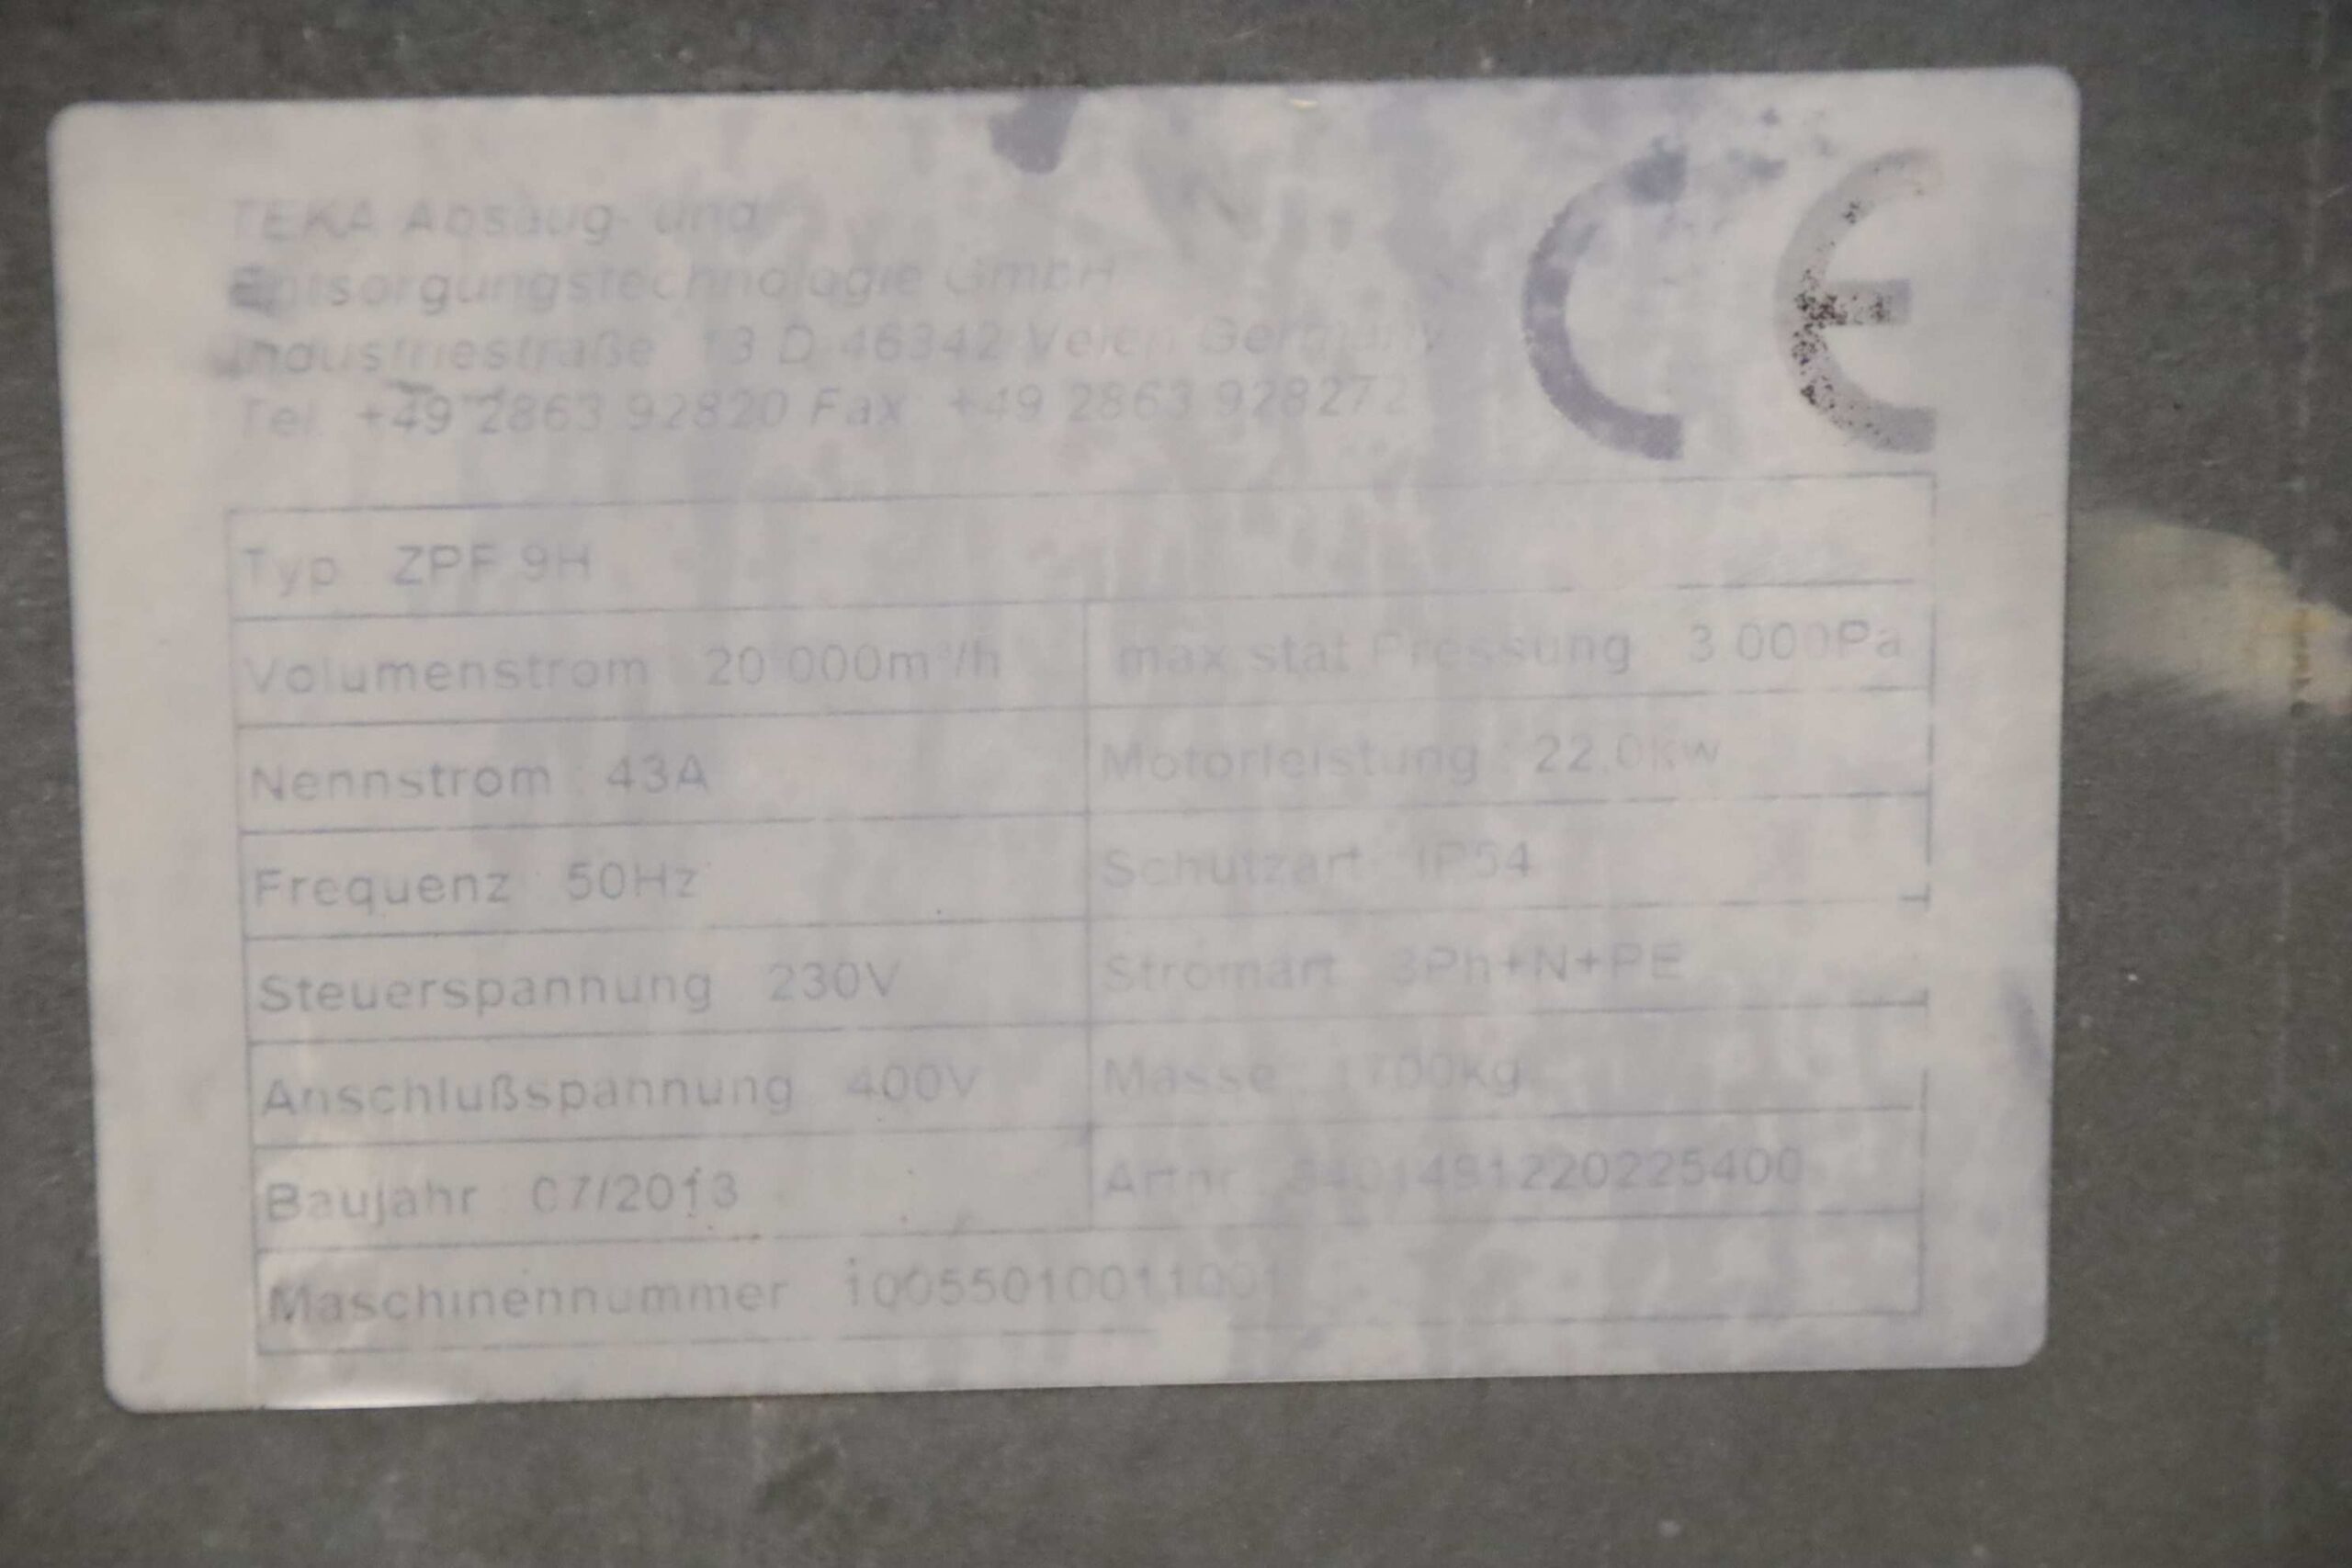 TEKA Absaug- und
Entsorgungstechnologie GmbH
Industriestraße 13 D-46342 Velen Germany
Tel. +49 2863 92820 Fax: +49 2863 928272
CE
Typ: ZPF 9H
Volumenstrom: 20 000m³/h max.stat Pressung: 3.000Pa
Nennstrom: 43A Motorleistung: 22.0kw
Frequenz: 50Hz Schutzart: IP54
Steuerspannung: 230V Stromart: 3Ph+N+PE
Anschlußspannung: 400V Masse: 1700kg
Baujahr: 07/2013 Artnr.:
Maschinennummer: 10055010011001